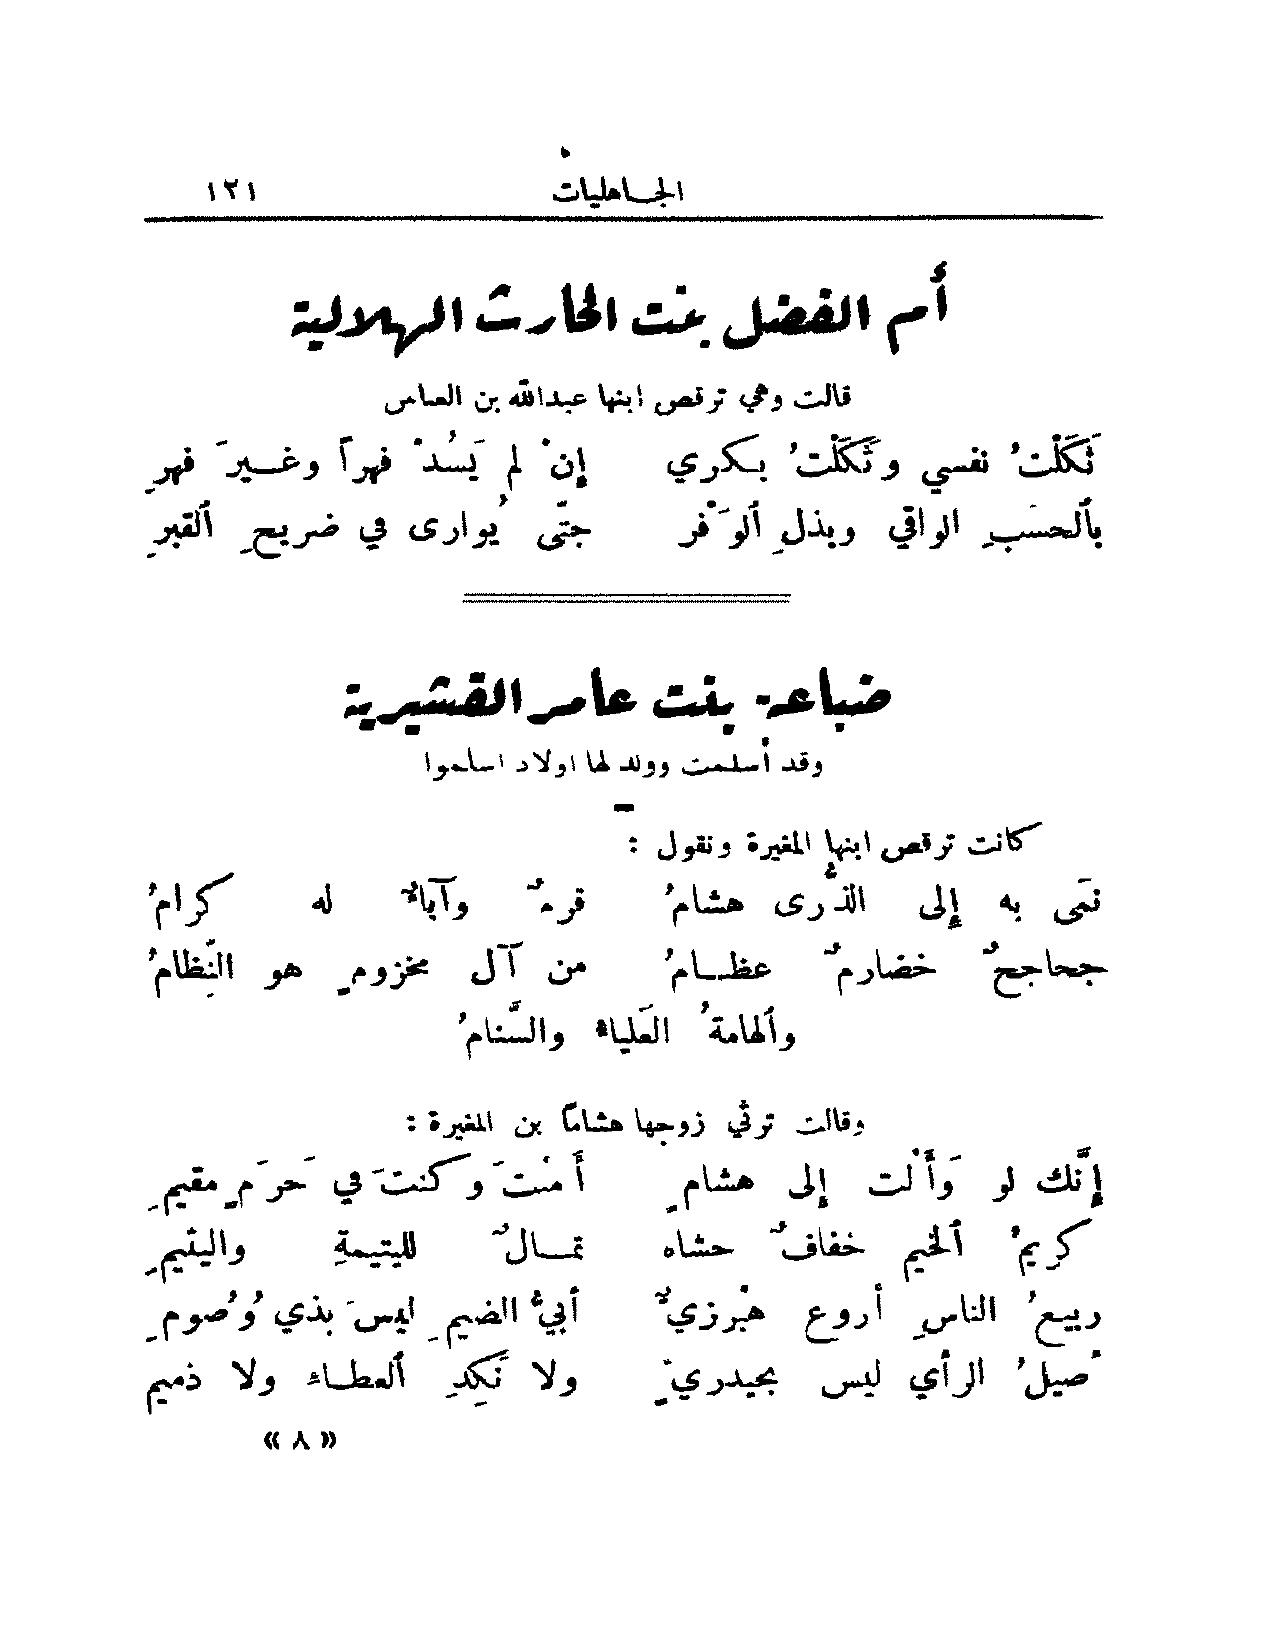 الجاهليات ١٢١
أم الفضل بنت الحارث الهلالية
قالت وهي ترقص ابنها عبدالله بن العباس
ثَكَلْتُ نفسي وثَكَلْتُ بكري إنْ لم يَسُدْ فهراً وغيرَ فهرِ
بألحسَبِ الواقي وبذلِ ألوَفْر حتّى يُوارى في ضريحِ ألقبرِ
ضباعة بنت عامر القشيرية
وقد أسلمت وولد لها اولاد اسلموا
كانت ترقص ابنها المغيرة وتقول :
نمَى به إلى الذُّرى هشامُ قرمٌ وآباءٌ له كرامُ
جحاجحٌ خضارمٌ عظامُ من آل مخزومٍ هو النِّظامُ
وألهامةُ العَلياءُ والسَّنامُ
وقالت ترثي زوجها هشاماً بن المغيرة :
إنَّك لو وَأَلْت إلى هشامٍ أَمنْتَ وكنتَ في حَرَمٍ مقيمِ
كريمُ ألخيم خفافٌ حشاه ثمالٌ لليتيمةِ واليتيمِ
ربيعُ الناسِ أروع هبْرزيٌّ أبيُّ الضيمِ ليسَ بذي وُصومِ
صيلُ الرأي ليس بحيدريٍّ ولا نَكِدِ ألعطاء ولا ذميم
« ٨ »